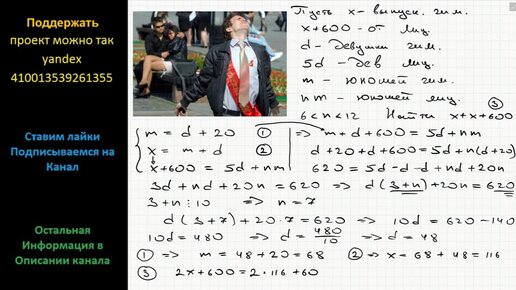 Поддержать
проект можно так
yandex
410013539261355
Ставим лайки
Подписываемся на
Канал
Остальная
Информация в
Описании канала
Пусть x - выпуск. гим.
x+600 - от лиц.
d - девушки гим.
5d - дев лиц.
m - юношей гим.
nm - юношей лиц.
6<n<12 Найти x+x+600 ③
m = d + 20 ①
x = m + d ②
x+600 = 5d + nm
=> m+d+600 = 5d+nm
d+20+d+600 = 5d+n(d+20)
620 = 5d-d-d+nd+20n
3d + nd + 20n = 620 => d(3+n)+20n = 620
3+n ⋮ 10 => n = 7
d(3+7)+20·7 = 620 => 10d = 620-140
10d = 480 => d = 480/10 => d = 48
① => m = 48+20 = 68 ② => x = 68+48 = 116
③ 2x+600 = 2·116+60